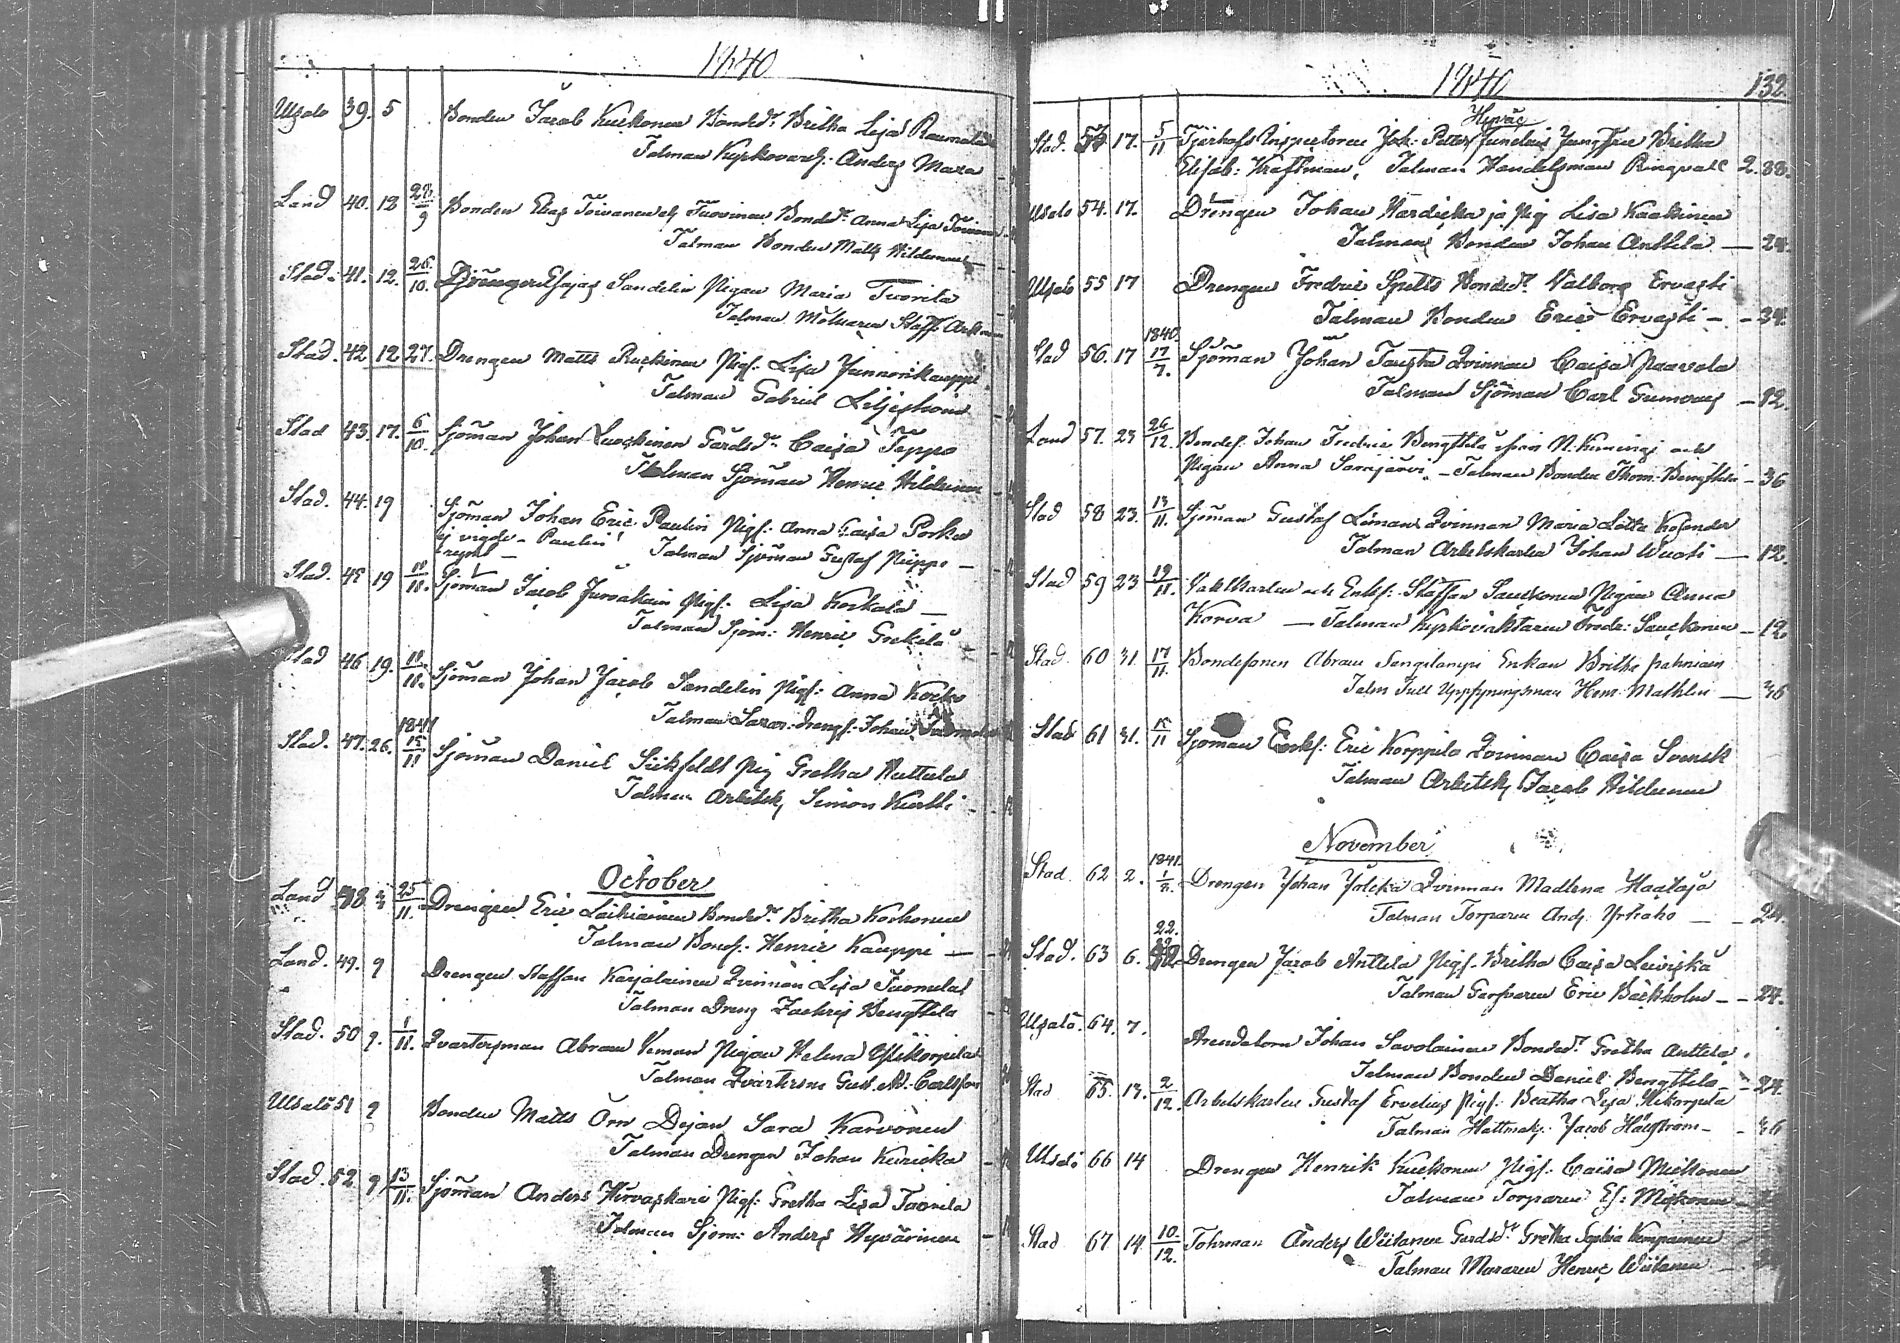 1840
Uhalo 39. 5 Bonden Jacob Kuckonen Bondedr. Britha Lisa
Talman Kyrkovard. Anders Mara
Land 40. 13 28/9 Bonden Elias Toivanen Tuovinen Bonded. Anna Lisa
Talman Bonden Matts Hildunen
Stad. 41. 12. 26/10. Drängen Esajas Sandelin Pigan Maria Tuorila
Talman Målaren Staff.
Stad. 42 12 27. Drengen Matts Ruckinen Pigs. Lisa Junnonkauppi
Talman Gabriel Liljeshond
Stad 43. 17. 6/10. Sjöman Johan Luoskinen Gårdsdr. Caisa Teppo
Talman Sjöman Henric Hildunen
Stad. 44. 19 Sjöman Johan Eric Paulin Pigs. Anna Caisa Porka
ej vigde - Paulin
rymt - Talman Sjöman Gustaf Piippo
Stad. 45 19 Sjöman Jacob Juvakain Pigs. Lisa Korkala
Talman Sjöm: Henric Grekilä
Stad 46 19. Sjöman Johan Jacob Sandelin Pigs: Anna Kocko
Talman Johan
Stad. 47. 26. 1841 15/11 Sjöman Daniel Sickfeldt Pig Gretha Ruttula
Talman Arbetsk. Simon Kurtti
October
Land 48 3 25/11. Drengen Eric Laihiainen Bondedr. Britha Korhonen
Talman Bonds. Henric Kauppi
Land. 49. 9 Drengen Staffan Karjalainen Qvinnan Lisa Tuomela
Talman Dreng Zachris Bengttila
Stad. 50 9. 1/11. Qvartersman Abram Veman Pigan Helena Ylikorpela
Talman Qvartersm Gust. Ad. Carlsson
Uhalo 51 9 Bonden Matts Örn Dejan Sara Karvonen
Talman Drengen Johan Kuricka
Stad. 52 9 13/11. Sjöman Anders Hirvaskari Pigs: Gretha Lisa Tuorila
Talman Sjöm: Anders Hyvärinen
1840 132.
Stad. 53 17. 5/11 Tjärhofs Inspectoren Joh. Petter Junelius Jungfru Britha
Elisab: Kraftman, Talman Handelsman Ringvall 2.88.
Uhalo 54. 17. Drengen Johan Hardicka ja Pig Lisa Kaakinen
Talman Bonden Johan Anttila — 24.
Uhalo 55 17 Drengen Fredric Spetts Bondedr. Valborg Ervasti
Talman Bonden Eric Ervasti - - 24.
Stad 56. 17 1840. 17/7. Sjöman Johan Tausta Qvinnan Caisa Paavola
Talman Sjöman Carl Gumerus — 12.
Land 57. 23 26/12. Bondes. Johan Fredric Bengttilä från N. Kiminge och
Pigan Anna Sarajärvi. - Talman Bonden Thom. Bengttila - 36
Stad 58 23. 13/11. Sjöman Gustaf Liman Qvinnan Maria Lotta Kosender
Talman Arbetskarlen Johan Wuoti — 12.
Stad 59 23 19/11. Vaktkarlen och Enkl: Staffan Sauckonen Pigan Anna
Korva — Talman Kyrkovaktaren Fredr: Sauckonen - 12.
Stad. 60 31. 17/11. Bondesonen Abram Sangilampi Enkan Britha
Talm Tull Uppsyningsman Henr. Mathlin — 36
Stad 61 31. 15/11 Sjöman Enkl: Eric Korppila Qvinnan Caisa Svensk
Talman Arbetsk. Jacob Hildunen
November
Stad 62 2. 1841. 1/8. Drengen Johan Jolcka Qvinnan Madlena Haataja
Talman Torparen And. Yrhaho — - 24.
Stad. 63 6. 22. Drengen Jacob Anttila Pigs. Britha Caisa Leiviskä
Talman Garfvaren Eric Bäckholm - - 24.
Uhalo. 64. 7. Arendatorn Johan Savolainen Bondedr. Gretha Anttila.
Talman Bonden Daniel Bengttila - 24.
Stad 65. 13. 2/12. Arbetskarlen Gustaf Ervelius Pigs: Beatha Lisa Ylikorpela
Talman Hattmak. Jacob Häggström - - 36
Uhalo 66 14 Drengen Henrik Kuckonen Pigs: Caisa Mickonen
Talman Torparen Es: Mickonen
Stad 67 14 10/12. Formman Anders Wiitanen Gårdsdr. Gretha Sophia Kempainen
Talman Muraren Henric Wiitanen